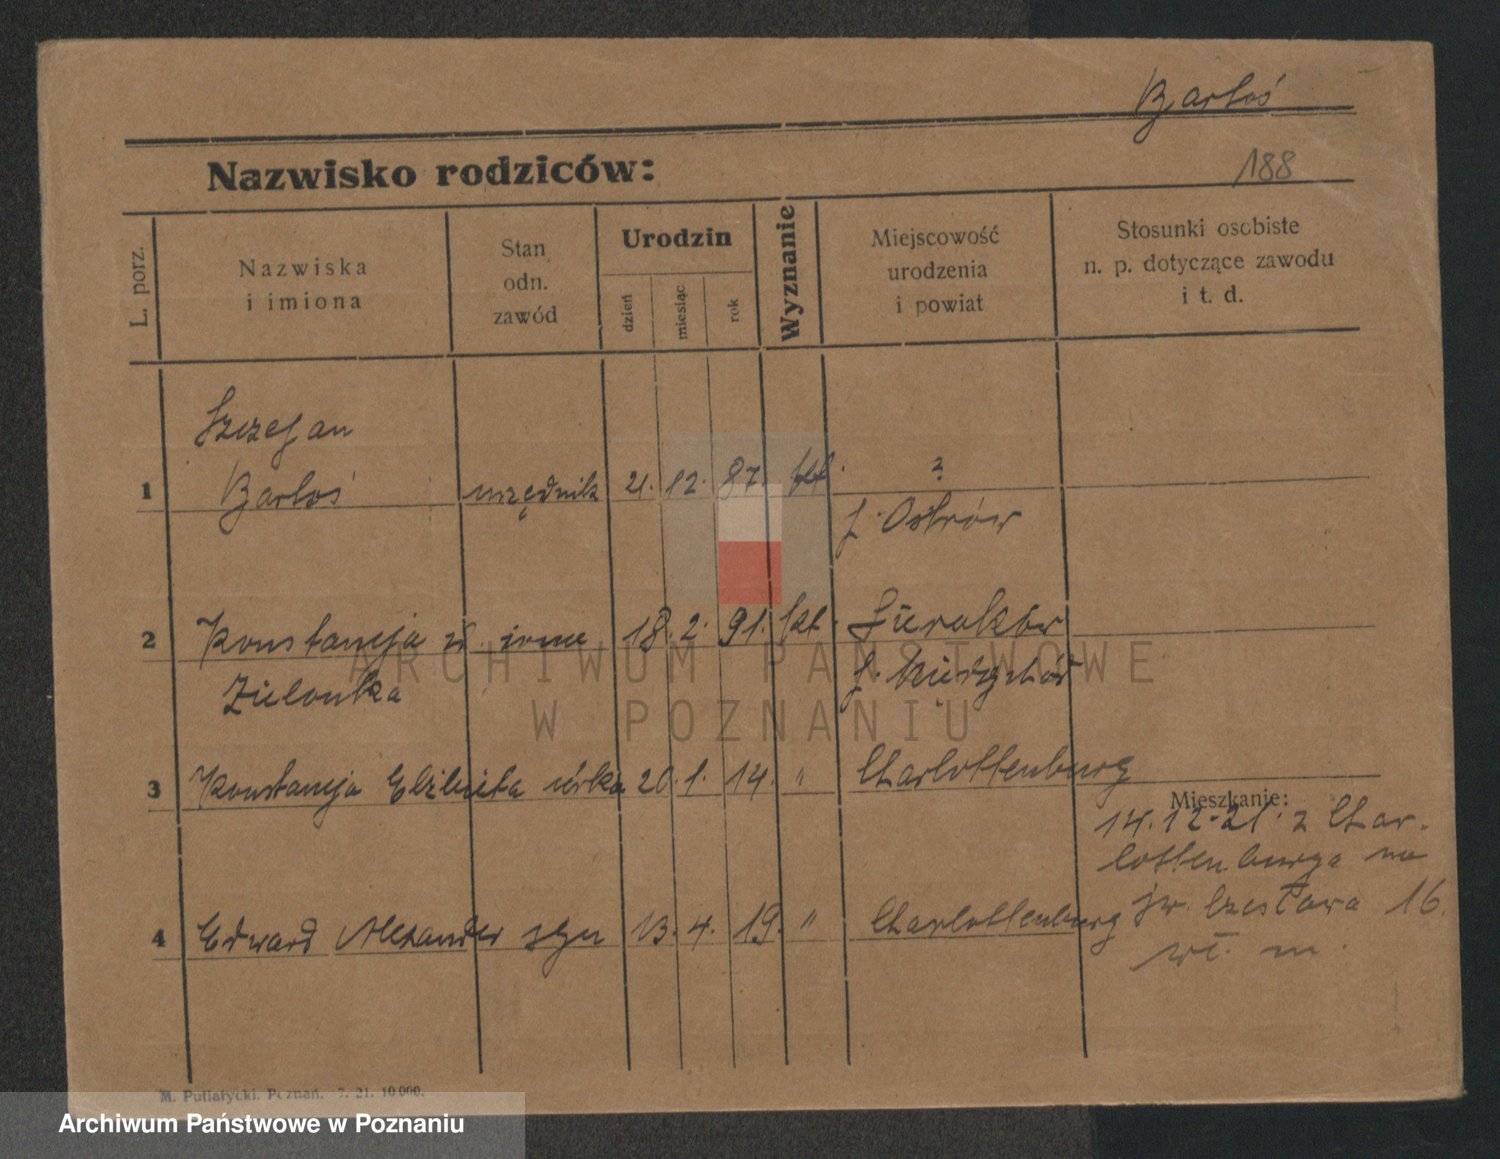 Bartoś
Nazwisko rodziców:
188
L. porz.
Nazwiska
i imiona
Stan
odn.
zawód
Urodzin
dzień
miesiąc
rok
Wyznanie
Miejscowość
urodzenia
i powiat
Stosunki osobiste
n. p. dotyczące zawodu
i t. d.
Szczepan
1 Bartoś urzędnik 21. 12. 87. kat. ?
p. Ostrów
2 Konstancja ż żona 18. 2. 91. kat. Sieraków
Zielonka p. Międzychód
3 Konstancja Elżbieta córka 20. 1. 14. " Charlottenburg
Mieszkanie:
14.12.21. z Char-
lottenburga na
św. Czesława 16.
4 Edward Alexander syn 13. 4. 19. " Charlottenburg
wł. m.
M. Putiatycki, Poznań. 7. 21. 10 000.
ARCHIWUM PAŃSTWOWE
W POZNANIU
Archiwum Państwowe w Poznaniu